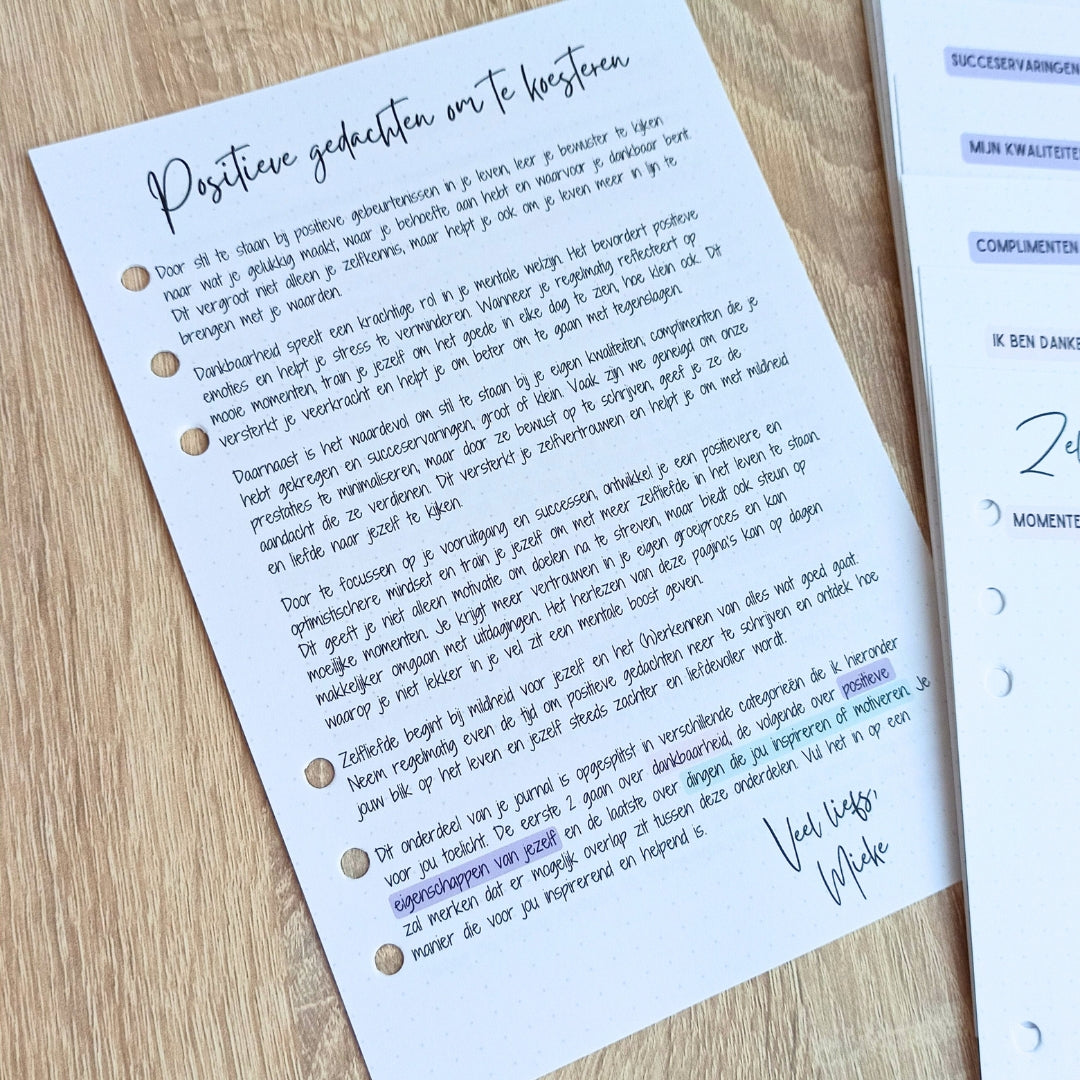 Positieve gedachten om te koesteren
Door stil te staan bij positieve gebeurtenissen in je leven, leer je bewuster te kijken
naar wat je gelukkig maakt, waar je behoefte aan hebt en waarvoor je dankbaar bent.
Dit vergroot niet alleen je zelfkennis, maar helpt je ook om je leven meer in lijn te
brengen met je waarden.
Dankbaarheid speelt een krachtige rol in je mentale welzijn. Het bevordert positieve
emoties en helpt je stress te verminderen. Wanneer je regelmatig reflecteert op
mooie momenten, train je jezelf om het goede in elke dag te zien, hoe klein ook. Dit
versterkt je veerkracht en helpt je om beter om te gaan met tegenslagen.
Daarnaast is het waardevol om stil te staan bij je eigen kwaliteiten, complimenten die je
hebt gekregen en succeservaringen, groot of klein. Vaak zijn we geneigd om onze
prestaties te minimaliseren, maar door ze bewust op te schrijven, geef je ze de
aandacht die ze verdienen. Dit versterkt je zelfvertrouwen en helpt je om met mildheid
en liefde naar jezelf te kijken.
Door te focussen op je vooruitgang en successen, ontwikkel je een positievere en
optimistischere mindset en train je jezelf om met meer zelfliefde in het leven te staan.
Dit geeft je niet alleen motivatie om doelen na te streven, maar biedt ook steun op
moeilijke momenten. Je krijgt meer vertrouwen in je eigen groeiproces en kan
makkelijker omgaan met uitdagingen. Het herlezen van deze pagina's kan op dagen
waarop je niet lekker in je vel zit een mentale boost geven.
Zelfliefde begint bij mildheid voor jezelf en het (h)erkennen van alles wat goed gaat.
Neem regelmatig even de tijd om positieve gedachten neer te schrijven en ontdek hoe
jouw blik op het leven en jezelf steeds zachter en liefdevoller wordt.
Dit onderdeel van je journal is opgesplitst in verschillende categorieën die ik hieronder
voor jou toelicht. De eerste 2 gaan over dankbaarheid, de volgende over positieve
eigenschappen van jezelf en de laatste over dingen die jou inspireren of motiveren. Je
zal merken dat er mogelijk overlap zit tussen deze onderdelen. Vul het in op een
manier die voor jou inspirerend en helpend is.
Veel liefs,
Mieke
SUCCESERVARINGEN
MIJN KWALITEITE
COMPLIMENTEN
IK BEN DANKB
Zel
MOMENTE